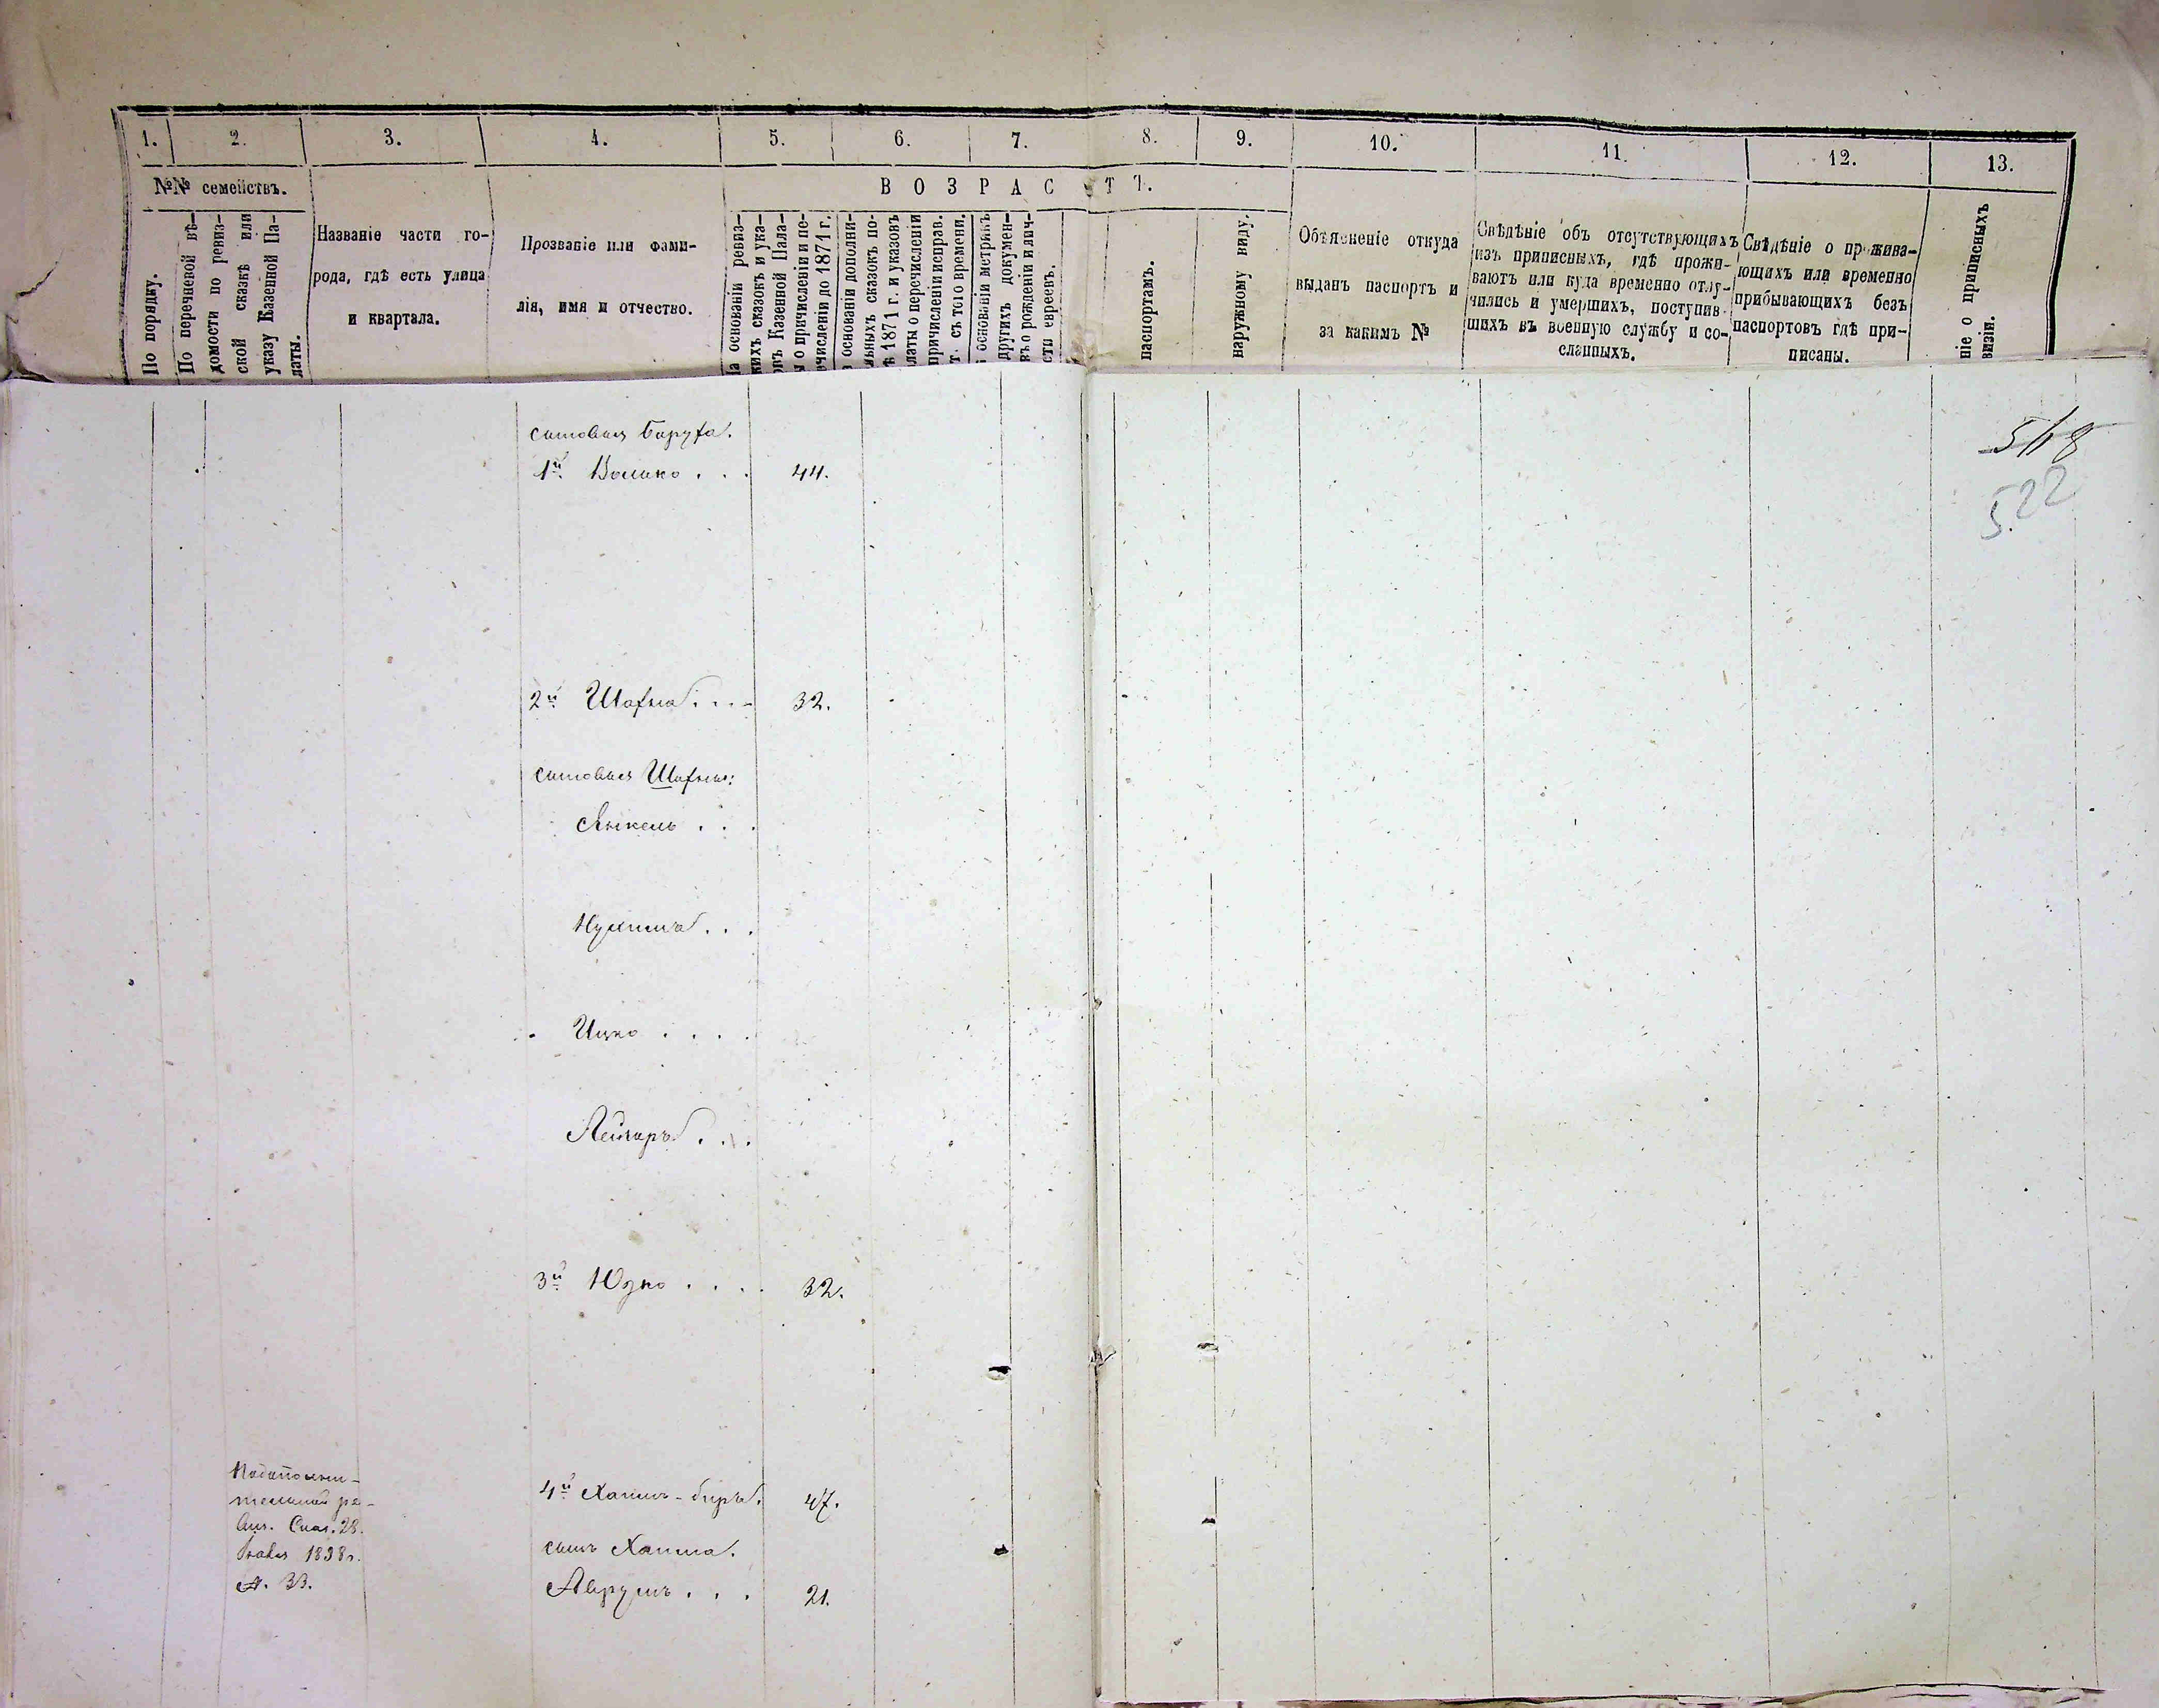 1. 2. 3. 4. 5. 6. 7. 8. 9. 10. 11. 12. 13.
№№ семействъ.
ВОЗРАСТЪ.
По порядку.
По перечневой вѣ-
домости по ревиз-
ской сказкѣ или
указу Казенной Па-
латы.
Названіе части го-
рода, гдѣ есть улица
и квартала.
Прозваніе или фами-
лія, имя и отчество.
а основаніи ревиз-
кихъ сказокъ и ука-
овъ Казенной Пала-
ы о причисленіи и пе-
ечисленіи до 1871 г.
основаніи дополни-
льныхъ сказокъ по-
ѣ 1871 г. и указовъ
латы о перечисленіи
причисленіи исправ.
т. съ того времени.
основаніи метрикъ
другихъ докумен-
въ о рожденіи и лич-
сти евреевъ.
паспортамъ.
наружному виду.
Объясненіе откуда
выданъ паспортъ и
за какимъ №
Свѣдѣніе объ отсутствующихъ
изъ приписныхъ, гдѣ прожи-
ваютъ или куда временно отлу-
чились и умершихъ, поступив-
шихъ въ военную службу и со-
сланныхъ.
Свѣдѣніе о прожива-
ющихъ или временно
прибывающихъ безъ
паспортовъ гдѣ при-
писаны.
ніе о приписныхъ
визіи.
518
522
сыновья Баруха.
1й Волько . . . 44.
2й Шахна . . . 32.
сыновья Шахны:
Янкель . . .
Нухимъ . . .
Ицко . . . .
Лейзаръ . . .
3й Юдко . . . . 32.
4й Хаимъ-биръ. 47.
сынъ Хаима.
Аврумъ . . . 21.
Подополни-
тельной ре-
виз. Сказ. 28.
1838 г.
№. 33.